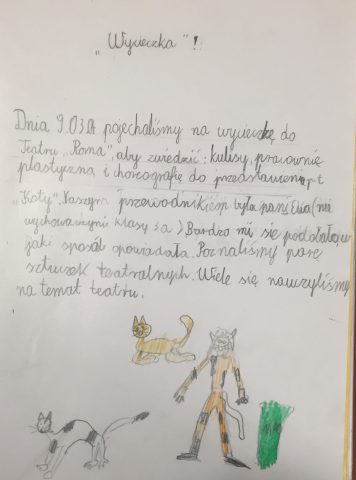 „Wycieczka"!
Dnia 9.03 pojechaliśmy na wycieczkę do
Teatru „Roma", aby zwiedzić: kulisy, pracownię
plastyczną i choreografię do przedstawienia pt
„Koty". Naszym przewodnikiem była pani Ela (nie
wychowawczyni klasy 3a) Bardzo mi się podobało, w
jaki sposób opowiadała. Poznaliśmy parę
sztuczek teatralnych. Wiele się nauczyliśmy
na temat teatru.